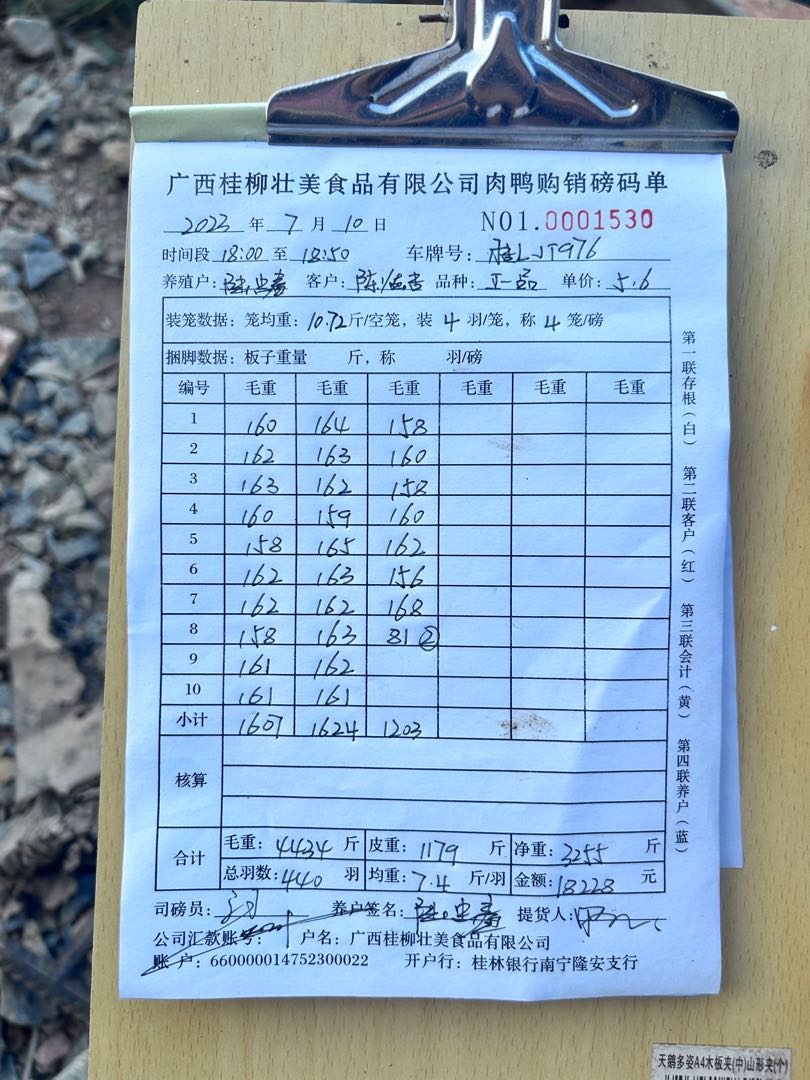 广西桂柳壮美食品有限公司肉鸭购销磅码单
2023 年 7 月 10 日 NO1.0001530
时间段 18:00 至 18:50 车牌号: 桂LJT976
养殖户: 客户: 陈 品种: 正品 单价: 5.6
装笼数据: 笼均重: 10.72 斤/空笼, 装 4 羽/笼, 称 4 笼/磅
捆脚数据: 板子重量 斤, 称 羽/磅
编号 毛重 毛重 毛重 毛重 毛重
1 160 164 158
2 162 163 160
3 163 162 158
4 160 159 160
5 158 165 162
6 162 163 156
7 162 162 168
8 158 163 81 ②
9 161 162
10 161 161
小计 1607 1624 1203
核算
合计 毛重: 4434 斤 皮重: 1179 斤 净重: 3255 斤
总羽数: 440 羽 均重: 7.4 斤/羽 金额: 18228 元
司磅员: 养户签名: 提货人:
公司汇款账号: 户名: 广西桂柳壮美食品有限公司
账 户: 660000014752300022 开户行: 桂林银行南宁隆安支行
第一联存根(白) 第二联客户(红) 第三联会计(黄) 第四联养户(蓝)
天鹅多姿A4木板夹(中)山形夹(个)